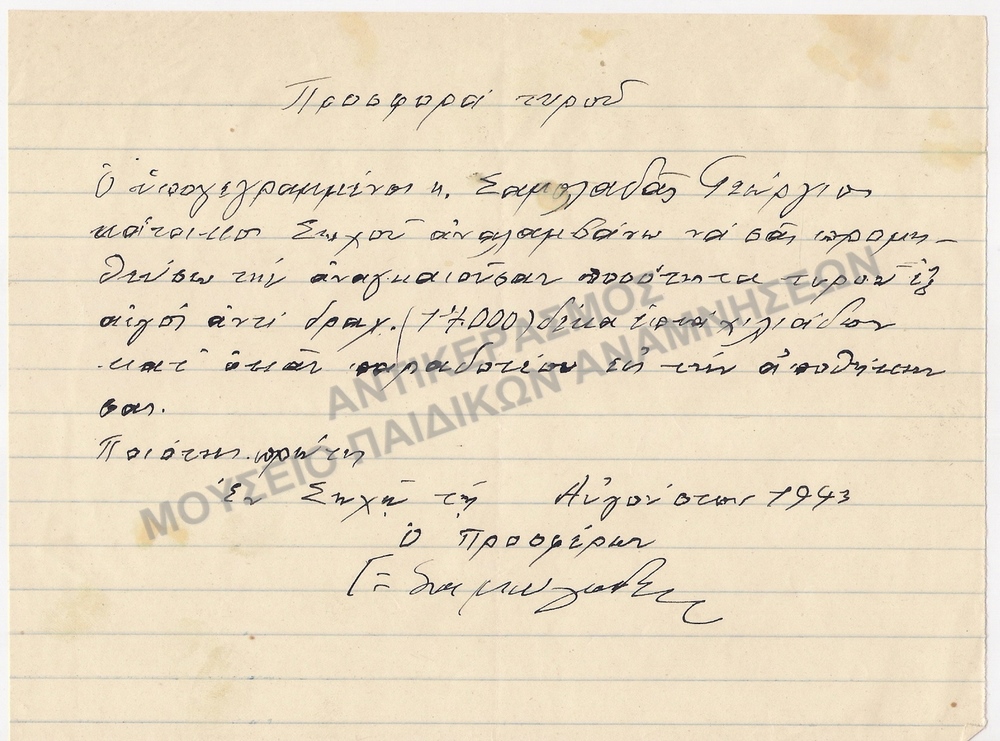 Προσφορά τυροῦ
Ὁ ὑπογεγραμμένος κ. Σαμολαδᾶς Γεώργιος
κάτοικος Σωχοῦ ἀναλαμβάνω νά σᾶς προμη-
θεύσω τήν ἀναγκαιοῦσαν ποσότητα τυροῦ ἐξ
αἰγός ἀντί δραχ. (17000) δέκα ἑπτά χιλιάδων
κατ' ὀκᾶν παραδοτέον εἰς τήν ἀποθήκην
σας.
Ποιότης πρώτης
Ἐν Σωχῷ τῇ Αὐγούστου 1943
Ὁ Προσφέρων
ΑΝΤΙΚΕΡΑΣΜΟΣ
ΜΟΥΣΕΙΟ ΠΑΙΔΙΚΩΝ ΑΝΑΜΝΗΣΕΩΝ